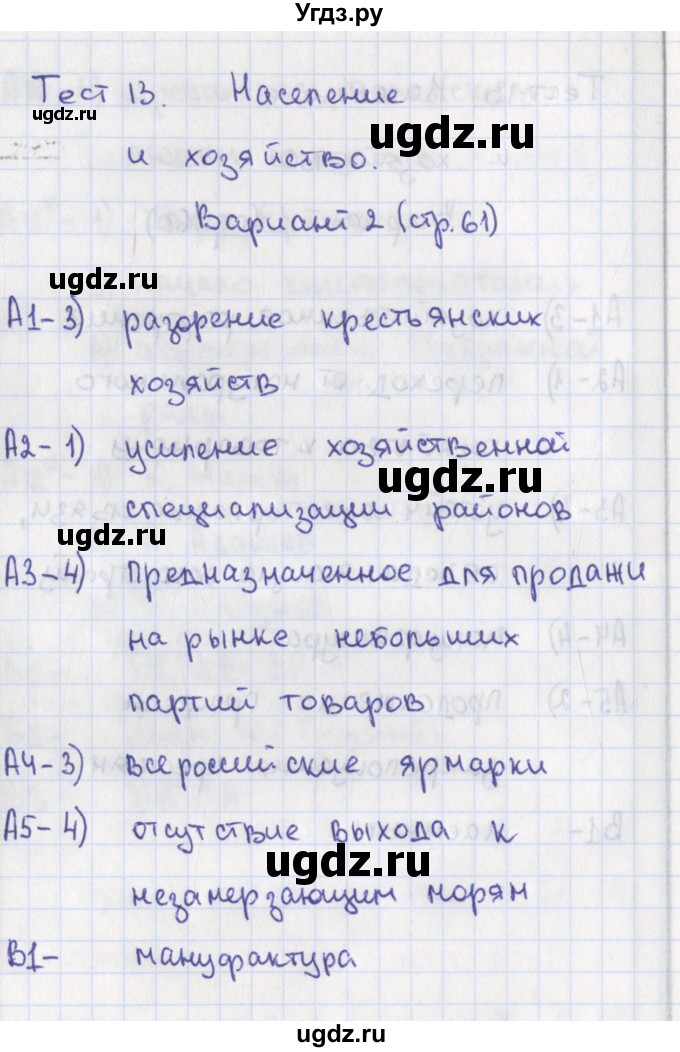 Угдз.ру
Тест 13. Население
ugdz.ru
ugdz.ru
и хозяйство.
Вариант 2 (стр.61)
ugdz.ru
А1-3) разорение крестьянских
хозяйств
ugdz.ru
А2-1) усиление хозяйственной
ugdz.ru
специализации районов
ugdz.ru
А3-4) предназначенное для продажи
на рынке небольших
ugdz.ru
партий товаров
А4-3) всероссийские ярмарки
ugdz.ru
А5-4) отсутствие выхода к
ugdz.ru
незамерзающим морям
В1- мануфактура
ugdz.ru
ugdz.ru